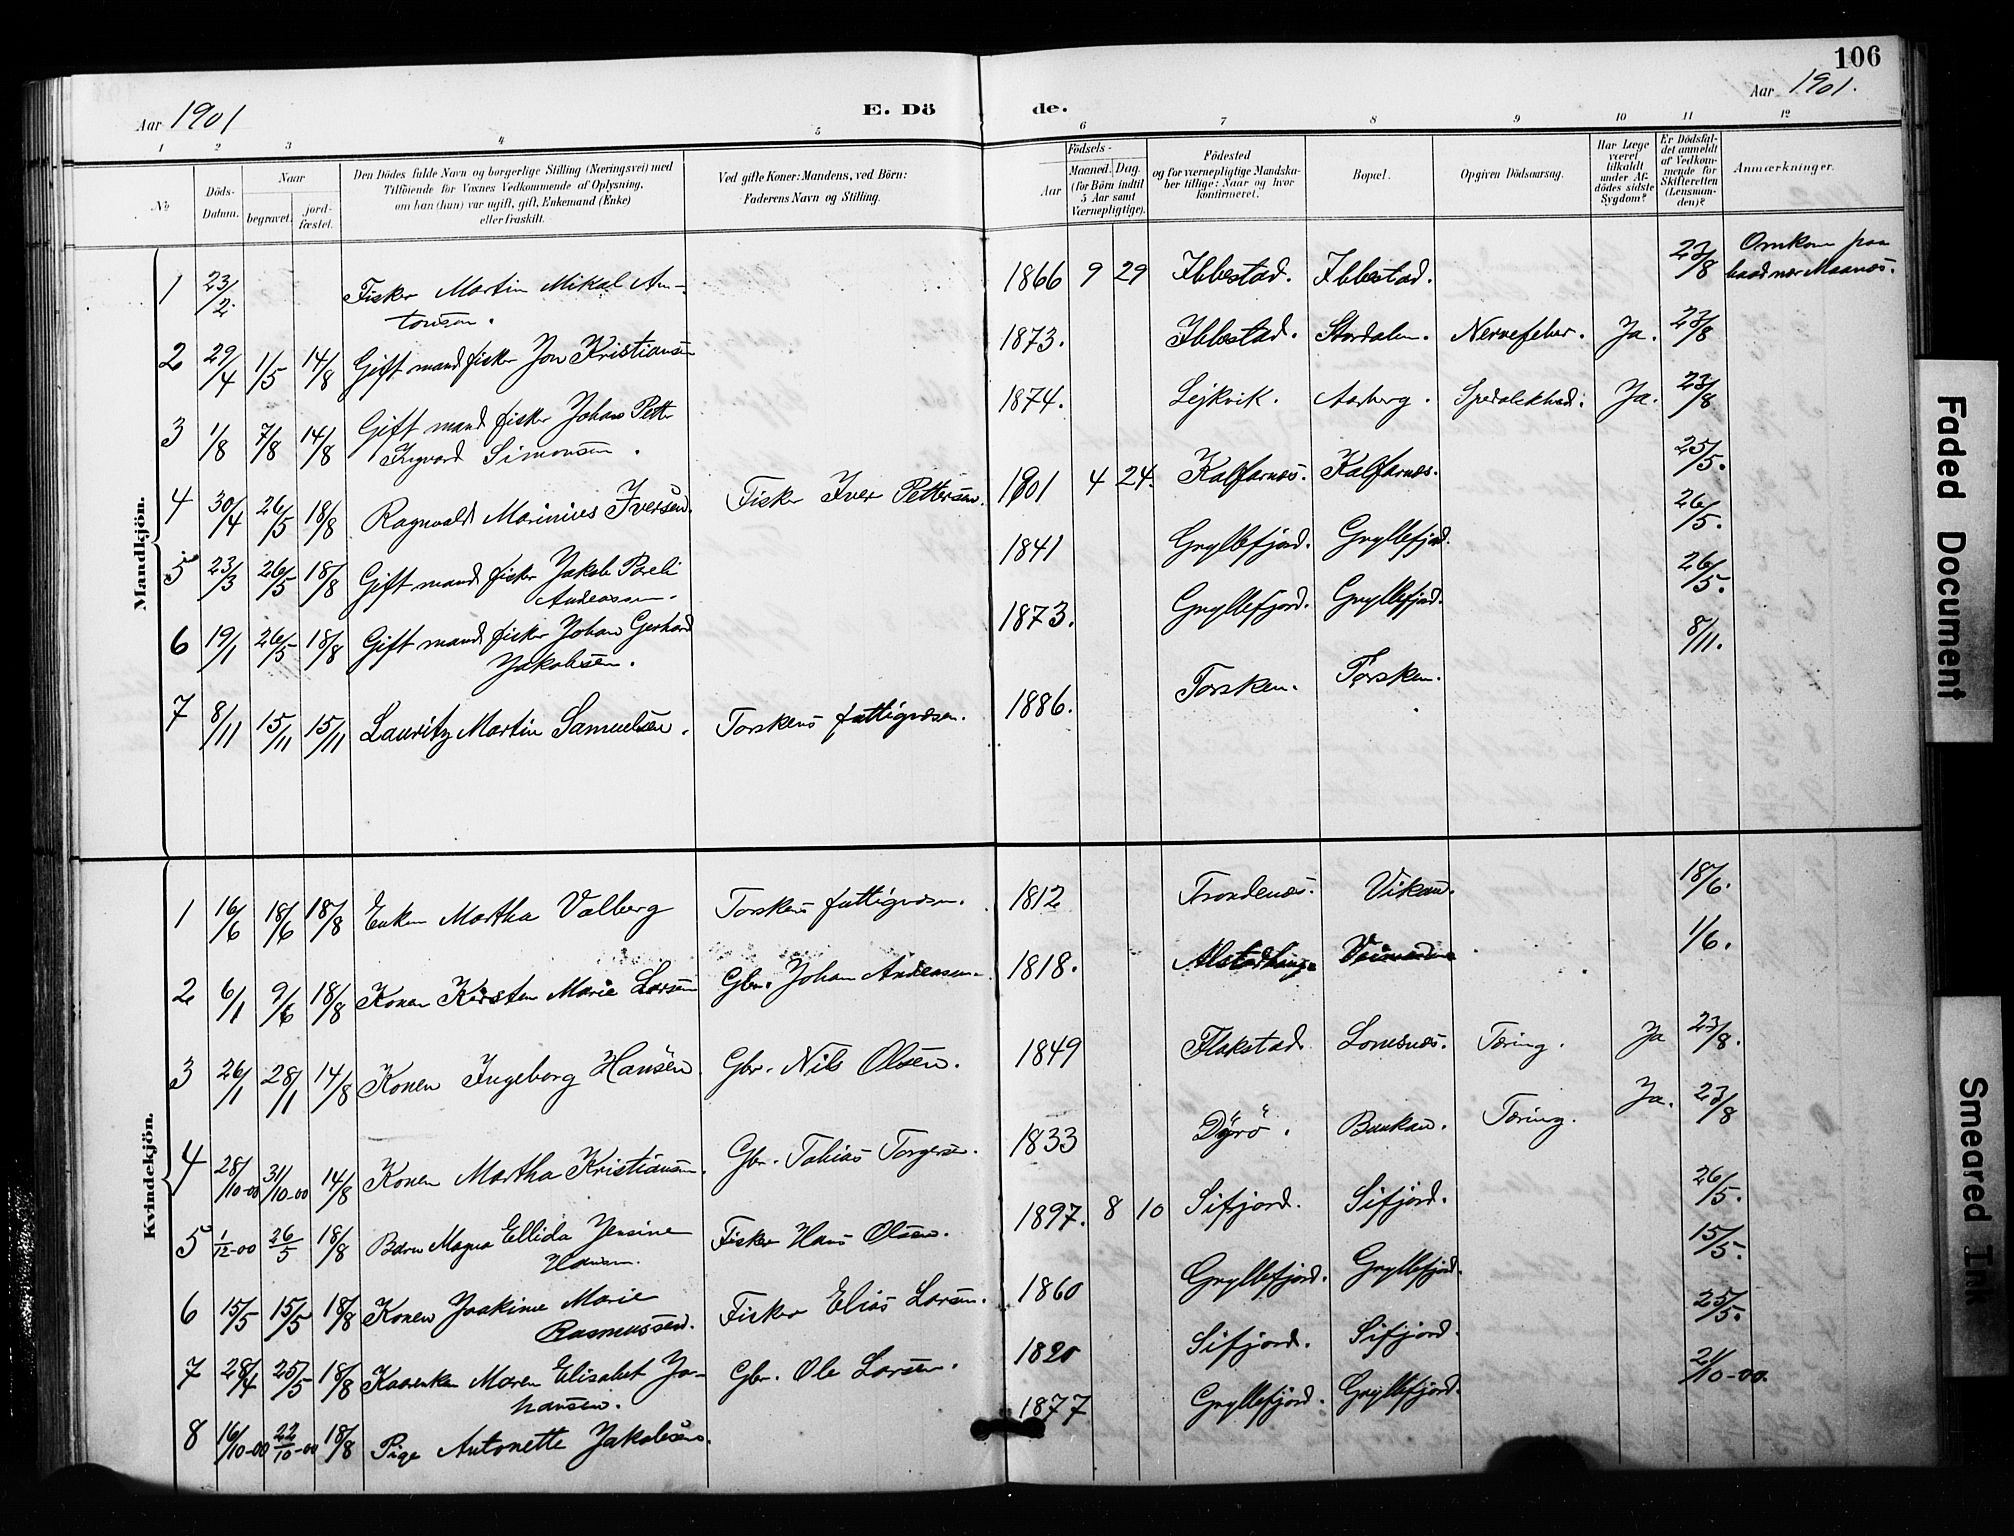 106
Aar 1901
E. Dö
de.
Aar 1901.
1 2 3 4 5 6 7 8 9 10 11 12
No
Döds-
Datum.
Naar
begravet.
jord-
fæstet.
Den Dödes fulde Navn og borgerlige Stilling (Næringsvei) med
Tilföiende for Voxnes Vedkommende af Oplysning,
om han (hun) var ugift, gift, Enkemand (Enke)
eller fraskilt.
Ved gifte Koner: Mandens, ved Börn:
Faderens Navn og Stilling.
Födsels-
Aar
Maaned. Dag.
(for Börn indtil
5 Aar samt
Værnepligtige).
Födested
og for værnepligtige Mandska-
ber tillige: Naar og hvor
konfirmeret.
Bopæl.
Opgiven Dödsaarsag.
Har Læge
været
tilkaldt
under Af-
dödes sidste
Sygdom?
Er Dödsfal-
det anmeldt
af Vedkom-
mende for
Skifteretten
(Lensman-
den)?
Anmærkninger.
Mandkjön.
1 23/2. Fisker Martin Mikal An-
tonsen. 1866 9 29 Ibbestad. Ibbestad. 23/8 Omkom paa
baad nær Maanes.
2 29/4 1/5 14/8 Gift mand fisker Jon Kristiansen 1873. Ibbestad. Stordalen. Nervefeber. Ja. 23/8
3 1/8 7/8 14/8 Gift mand fisker Johan Petter
Ingvard Simonsen. 1874. Lejkvik. Aarberg. Spedalskhed. Ja. 23/8
4 30/4 26/5 18/8 Ragnvald Marinius Iversen. Fisker Iver Pettersen. 1901 4 24. Kalfarnes. Kalfarnes. 25/5.
5 23/3 26/5 18/8 Gift mand fisker Jakob Pareli
Andreassen. 1841 Gryllefjord. Gryllefjord. 26/5.
6 19/1 26/5 18/8 Gift mand fisker Johan Gerhard
Jakobsen. 1873. Gryllefjord. Gryllefjord. 26/5.
7 8/11 15/11 15/11 Lauritz Martin Samuelsen. Torskens fattigvæsen. 1886. Torsken. Torsken. 8/11.
Kvindekjön.
1 16/6 18/6 18/8 Enken Martha Valberg Torskens fattigvæsen. 1812 Trondenæs. Vikan. 18/6.
2 6/1 9/6 18/8 Konen Kirsten Marie Larsen Gbr. Johan Andreassen. 1818. Alstadhaug 1/6.
3 26/1 28/1 14/8 Konen Ingeborg Hansen Gbr. Nils Olsen. 1849 Flakstad. Lonesnæs. Tæring. Ja 23/8.
4 28/10-00 31/10-00 14/8 Konen Martha Kristiansen. Gbr. Tobias Torgersen. 1833 Dyrö. Bunkan. Tæring. Ja. 23/8
5 1/12-00 26/5 18/8 Barn Magna Ellida Jensine
Hansen. Fisker Hans Olsen. 1897. 8 10 Sifjord. Sifjord. 26/5.
6 15/5 15/5 18/8 Konen Joakime Marie
Rasmussen. Fisker Elias Larsen. 1860 Gryllefjord. Gryllefjord. 15/5.
7 28/4 25/5 18/8 Kaarenken Maren Elisabet Jo-
hansen. Gbr. Ole Larsen. 1820 Sifjord. Sifjord. 25/5.
8 16/10-00 22/10-00 18/8 Pige Antonette Jakobsen. 1877 Gryllefjord. Gryllefjord. 21/10-00.
Faded Document
Smeared Ink